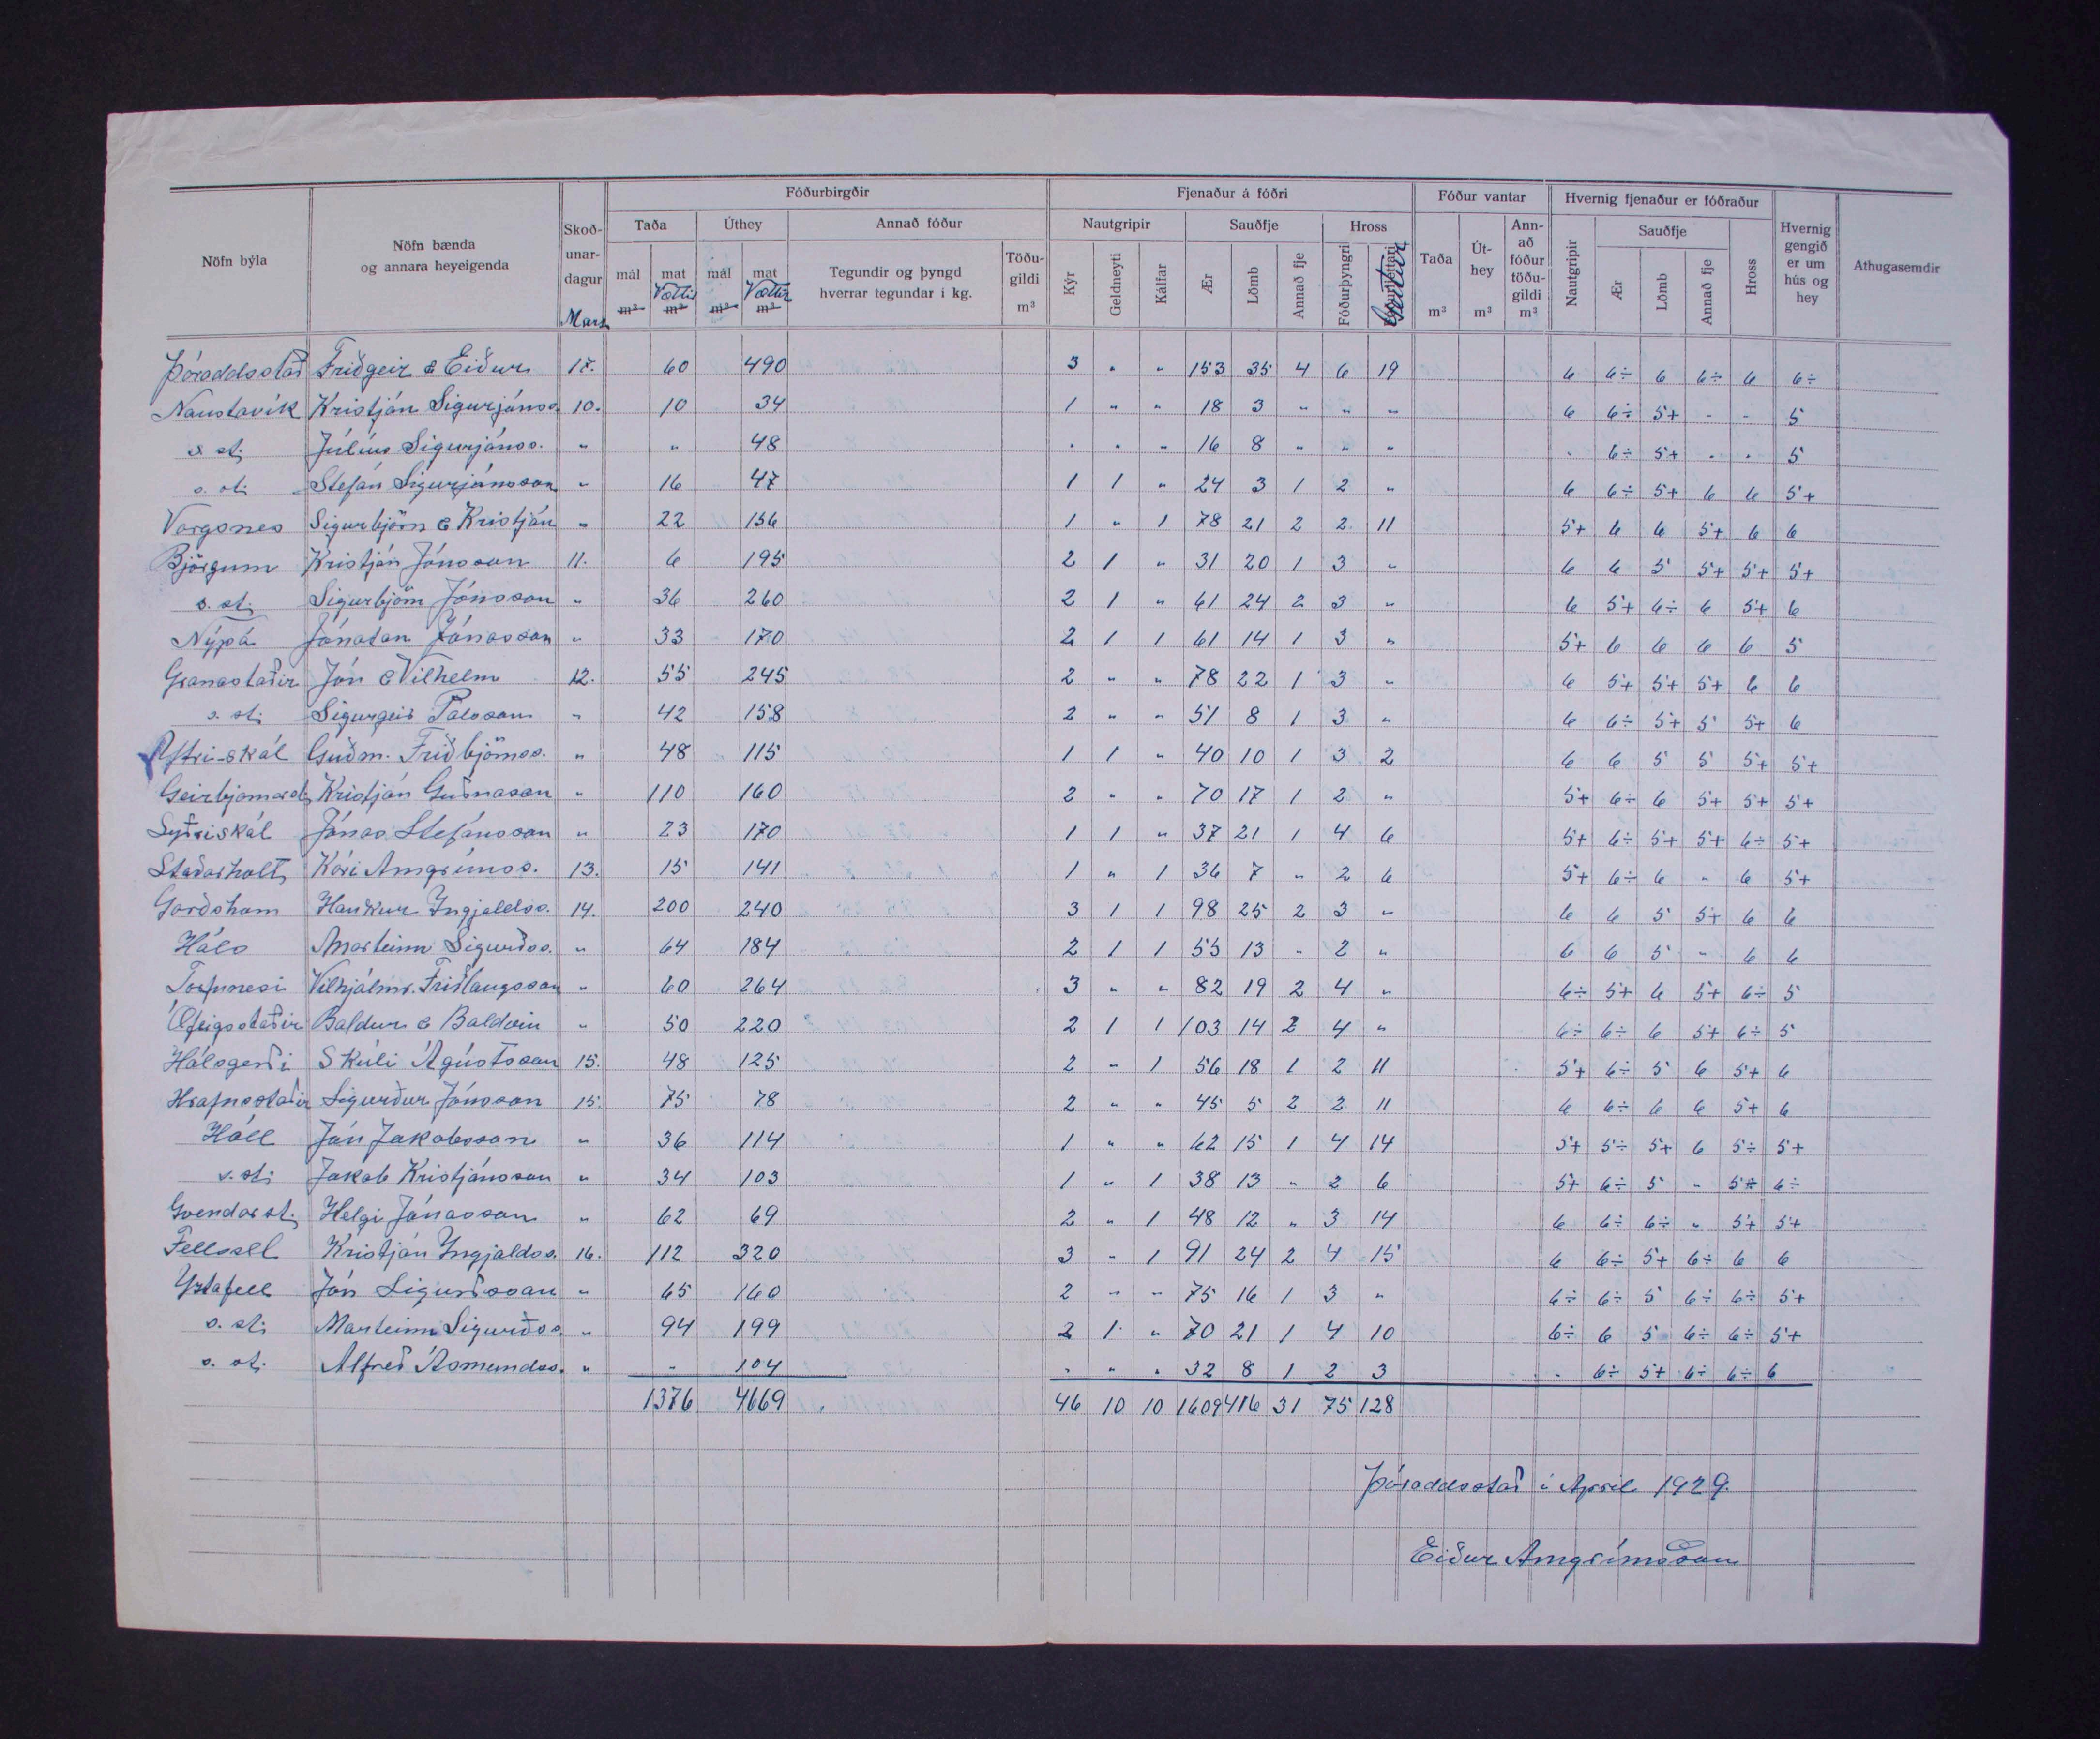 Nöfn býla | Nöfn bænda og annara heyeigenda | Skoð-unar-dagur Mars | Fóðurbirgðir | Fjenaður á fóðri | Fóður vantar | Hvernig fjenaður er fóðraður | Hvernig gengið er um hús og hey | Athugasemdir
Taða | Úthey | Annað fóður | Nautgripir | Sauðfje | Hross | Taða m³ | Út-hey m³ | Ann-að fóður töðu-gildi m³ | Nautgripir | Sauðfje | Hross
mál m³ | mat Vættir m³ | mál m³ | mat Vættir m³ | Tegundir og þyngd hverrar tegundar í kg. | Töðu-gildi m³ | Kýr | Geldneyti | Kálfar | Ær | Lömb | Annað fje | Fóðurþyngri | Geitur | Ær | Lömb | Annað fje
Þóroddsstað Friðgeir & Eiður 17. 60 490 3 " " 153 35 4 6 19 6 6÷ 6 6÷ 6 6÷
Naustavík Kristján Sigurjónss. 10. 10 34 1 " " 18 3 " " " 6 6÷ 5+ - - 5
s. st. Júlíus Sigurjónss. " " 48 " " " 16 8 " " " " 6÷ 5+ " " 5
s. st. Stefán Sigurjónsson " 16 47 1 1 " 24 3 1 2 " 6 6÷ 5+ 6 6 5+
Vargsnes Sigurbjörn & Kristján " 22 156 1 " 1 78 21 2 2 11 5+ 6 6 5+ 6 6
Björgum Kristján Jónsson 11. 6 195 2 1 " 31 20 1 3 " 6 6 5 5+ 5+ 5+
s. st. Sigurbjörn Jónsson " 36 260 2 1 " 61 24 2 3 " 6 5+ 6÷ 6 5+ 6
Nýpá Jónatan Jónasson " 33 170 2 1 1 61 14 1 3 " 5+ 6 6 6 6 5
Granastaðir Jón & Vilhelm 12. 55 245 2 " " 78 22 1 3 " 6 5+ 5+ 5+ 6 6
s. st. Sigurgeir Pálsson " 42 158 2 " " 51 8 1 3 " 6 6÷ 5+ 5 5+ 6
Ystri-skál Guðm. Friðbjörnss. " 48 115 1 1 " 40 10 1 3 2 6 6 5 5 5+ 5+
Geirbjarnarst. Kristján Guðnason " 110 160 2 " " 70 17 1 2 " 5+ 6÷ 6 5+ 5+ 5+
Syðriskál Jónas Stefánsson " 23 170 1 1 " 37 21 1 4 6 5+ 6÷ 5+ 5+ 6÷ 5+
Staðarholt Kári Arngrímss. 13. 15 141 1 " 1 36 7 " 2 6 5+ 6÷ 6 " 6 5+
Garðsham Haukur Ingjaldss. 14. 200 240 3 1 1 98 25 2 3 " 6 6 5 5+ 6 6
Háls Marteinn Sigurðss. " 64 184 2 1 1 55 13 " 2 " 6 6 5 " 6 6
Torfunesi Vilhjálmr. Friðlaugsson " 60 264 3 " " 82 19 2 4 " 6÷ 5+ 6 5+ 6÷ 5
Ófeigsstaðir Baldur & Baldvin " 50 220 2 1 1 103 14 2 4 " 6÷ 6÷ 6 5+ 6÷ 5
Hálsgerði Skúli Ágústsson 15. 48 125 2 - 1 56 18 1 2 11 5+ 6÷ 5 6 5+ 6
Hrafnsstaðir Sigurður Jónsson 15. 75 78 2 " " 45 5 2 2 11 6 6÷ 6 6 5+ 6
Hóll Jón Jakobsson " 36 114 1 " " 62 15 1 4 14 5+ 5÷ 5+ 6 5÷ 5+
s. st. Jakob Kristjánsson " 34 103 1 " 1 38 13 " 2 6 5+ 6÷ 5 " 5+ 6÷
Gvendarst. Helgi Jónasson " 62 69 2 " 1 48 12 " 3 14 6 6÷ 6÷ " 5+ 5+
Fellssel Kristján Ingjaldss. 16. 112 320 3 - 1 91 24 2 4 15 6 6÷ 5+ 6÷ 6 6
Yztafell Jón Sigurðsson " 65 160 2 " " 75 16 1 3 " 6÷ 6÷ 5 6÷ 6÷ 5+
s. st. Marteinn Sigurðss. " 94 199 2 1 " 70 21 1 4 10 6÷ 6 5 6÷ 6÷ 5+
s. st. Alfreð Ásmundss. " - 104 " " " 32 8 1 2 3 " 6÷ 5+ 6÷ 6÷ 6
1376 4669 46 10 10 1609 416 31 75 128
Þóroddsstað í Apríl 1929.
Eiður Arngrímsson